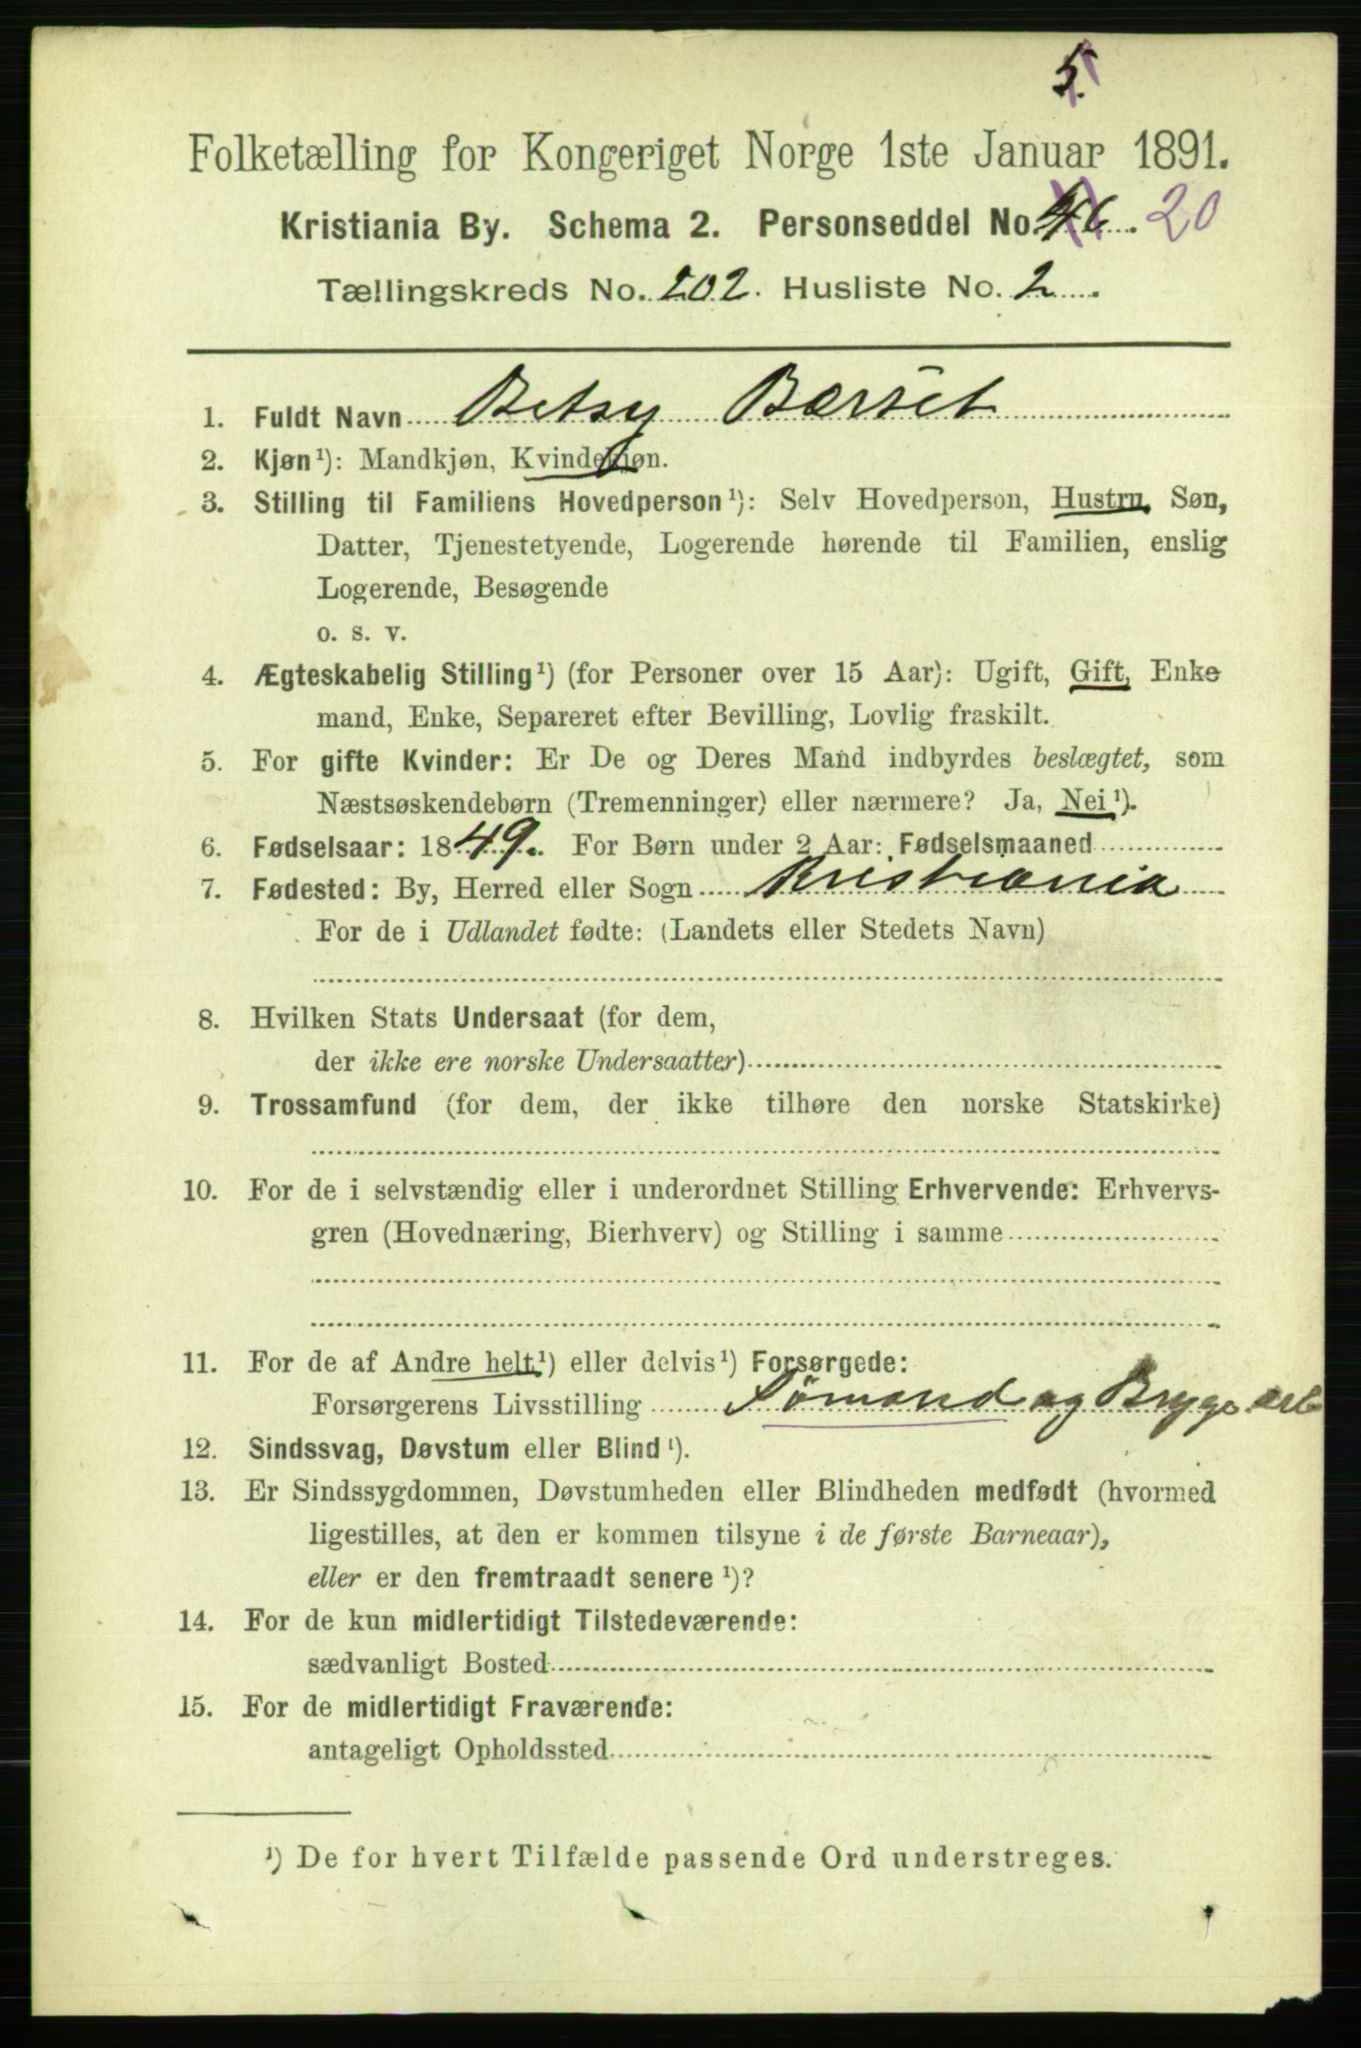 5.
Folketælling for Kongeriget Norge 1ste Januar 1891.
Kristiania By. Schema 2. Personseddel No. 46. 20
Tællingskreds No. 202. Husliste No. 2.
1. Fuldt Navn Betsy Bærset
2. Kjøn¹): Mandkjøn, Kvindekjøn.
3. Stilling til Familiens Hovedperson¹): Selv Hovedperson, Hustru, Søn,
Datter, Tjenestetyende, Logerende hørende til Familien, enslig
Logerende, Besøgende
o. s. v.
4. Ægteskabelig Stilling¹) (for Personer over 15 Aar): Ugift, Gift, Enke
mand, Enke, Separeret efter Bevilling, Lovlig fraskilt.
5. For gifte Kvinder: Er De og Deres Mand indbyrdes beslægtet, som
Næstsøskendebørn (Tremenninger) eller nærmere? Ja, Nei¹).
6. Fødselsaar: 1849. For Børn under 2 Aar: Fødselsmaaned
7. Fødested: By, Herred eller Sogn Kristiania
For de i Udlandet fødte: (Landets eller Stedets Navn)
8. Hvilken Stats Undersaat (for dem,
der ikke ere norske Undersaatter)
9. Trossamfund (for dem, der ikke tilhøre den norske Statskirke)
10. For de i selvstændig eller i underordnet Stilling Erhvervende: Erhvervs-
gren (Hovednæring, Bierhverv) og Stilling i samme
11. For de af Andre helt¹) eller delvis¹) Forsørgede:
Forsørgerens Livsstilling Sömand og Brygearb
12. Sindssvag, Døvstum eller Blind¹).
13. Er Sindssygdommen, Døvstumheden eller Blindheden medfødt (hvormed
ligestilles, at den er kommen tilsyne i de første Barneaar),
eller er den fremtraadt senere¹)?
14. For de kun midlertidigt Tilstedeværende:
sædvanligt Bosted
15. For de midlertidigt Fraværende:
antageligt Opholdssted
¹) De for hvert Tilfælde passende Ord understreges.